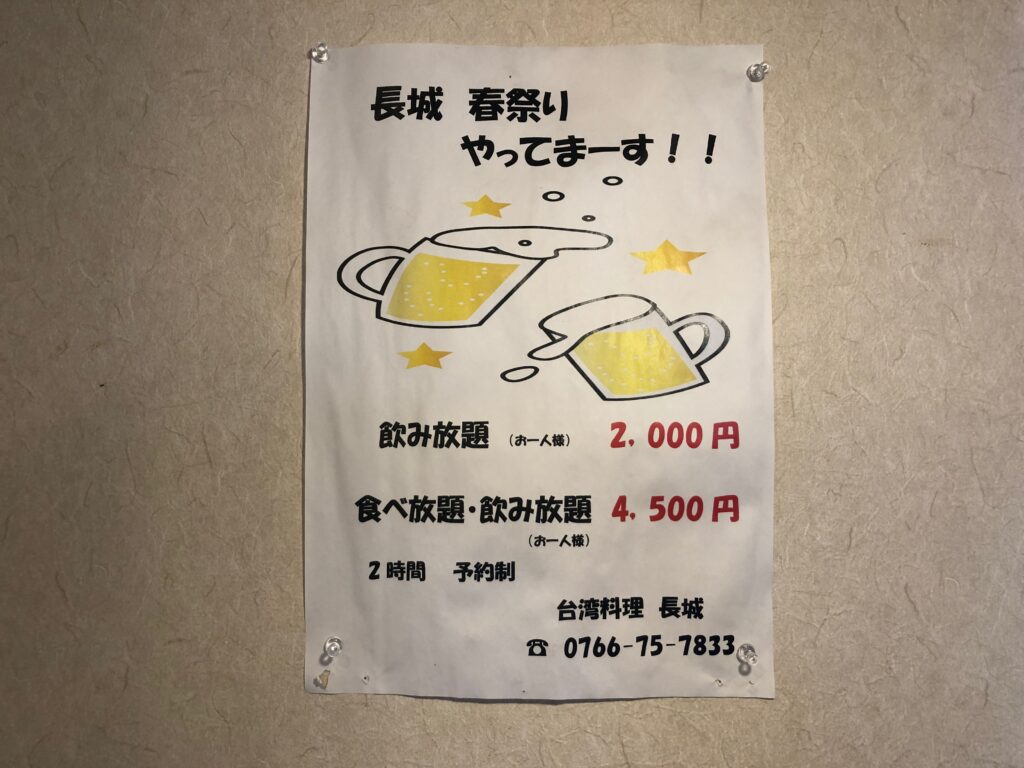 長城 春祭り
やってまーす！！
飲み放題 (お一人様) 2,000円
食べ放題・飲み放題 4,500円
(お一人様)
2時間 予約制
台湾料理 長城
☎ 0766-75-7833